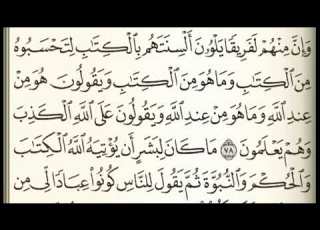 وَإِنَّ مِنْهُمْ لَفَرِيقًا يَلْوُۥنَ أَلْسِنَتَهُم بِٱلْكِتَٰبِ لِتَحْسَبُوهُ
مِنَ ٱلْكِتَٰبِ وَمَا هُوَ مِنَ ٱلْكِتَٰبِ وَيَقُولُونَ هُوَ مِنْ
عِندِ ٱللَّهِ وَمَا هُوَ مِنْ عِندِ ٱللَّهِ وَيَقُولُونَ عَلَى ٱللَّهِ ٱلْكَذِبَ
وَهُمْ يَعْلَمُونَ ٧٨ مَا كَانَ لِبَشَرٍ أَن يُؤْتِيَهُ ٱللَّهُ ٱلْكِتَٰبَ
وَٱلْحُكْمَ وَٱلنُّبُوَّةَ ثُمَّ يَقُولَ لِلنَّاسِ كُونُوا۟ عِبَادًا لِّى مِن